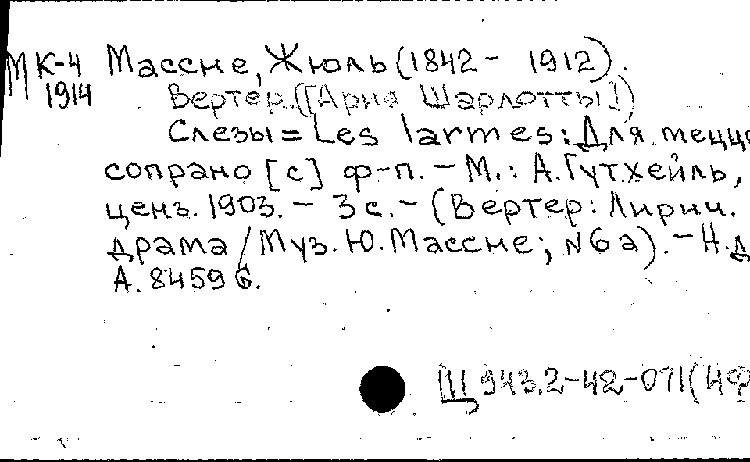 МК-4 Массне, Жюль (1842 - 1912).
1914
Вертер. ([Ария Шарлотты])
Слезы = Les larmes: Для меццо
сопрано [с] ф-п. - М.: А. Гутхейль,
ценз. 1903. - 3 с. - (Вертер: Лирич.
драма / Муз. Ю. Массне; N6а). - Н.д
А. 8459 G.
Щ 943.2-42-071(4Ф